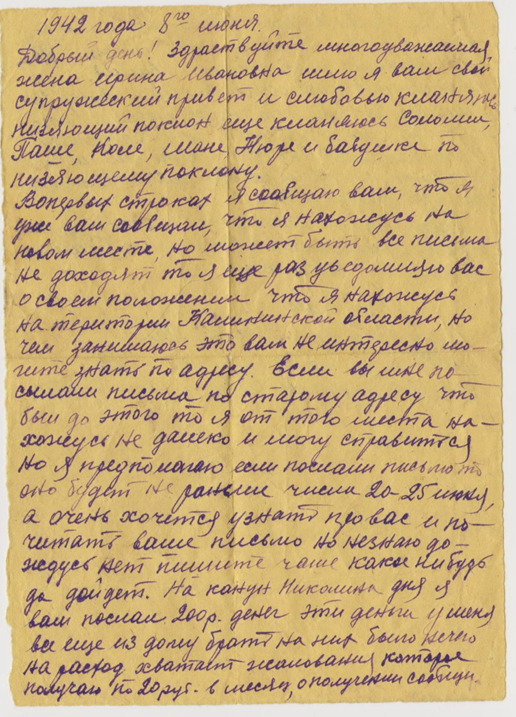 1942 года 8го июня.
Добрый день! Здраствуйте многоуважаемая
жена Ирина Ивановна шлю я вам свой
супружеский привет и слюбовью кланяюсь
низляющий поклон еще кланяюсь Соломии,
Паше, Коле, Мане Нюре и бабушке по
низляющему поклону.
Вопервых строках я сообщаю вам, что я
уже вам сообщал, что я нахожусь на
новом месте, но может быть все письма
не доходят то я еще раз уведомляю вас
о своем положении что я нахожусь
на територии Калининской области, но
чем занимаюсь это вам не интересно мо-
гите знать по адресу. Если вы мне по-
сылали письма по старому адресу что
был до этого то я от того места на-
хожусь не далеко и могу справится
но я предпологаю если послали письмо то
оно будет не раньши числа 20-25 июня,
а очень хочется узнать про вас и по-
читать ваше письмо но незнаю до-
ждусь нет пишите чаше какое нибудь
да дойдет. На канун Николина дня я
вам послал 200р. денег эти деньги у меня
все еще из дому брат на них было нечего
на расход хватает жалования которое
получаю по 20 руб. в месяц, о получении сообщи.